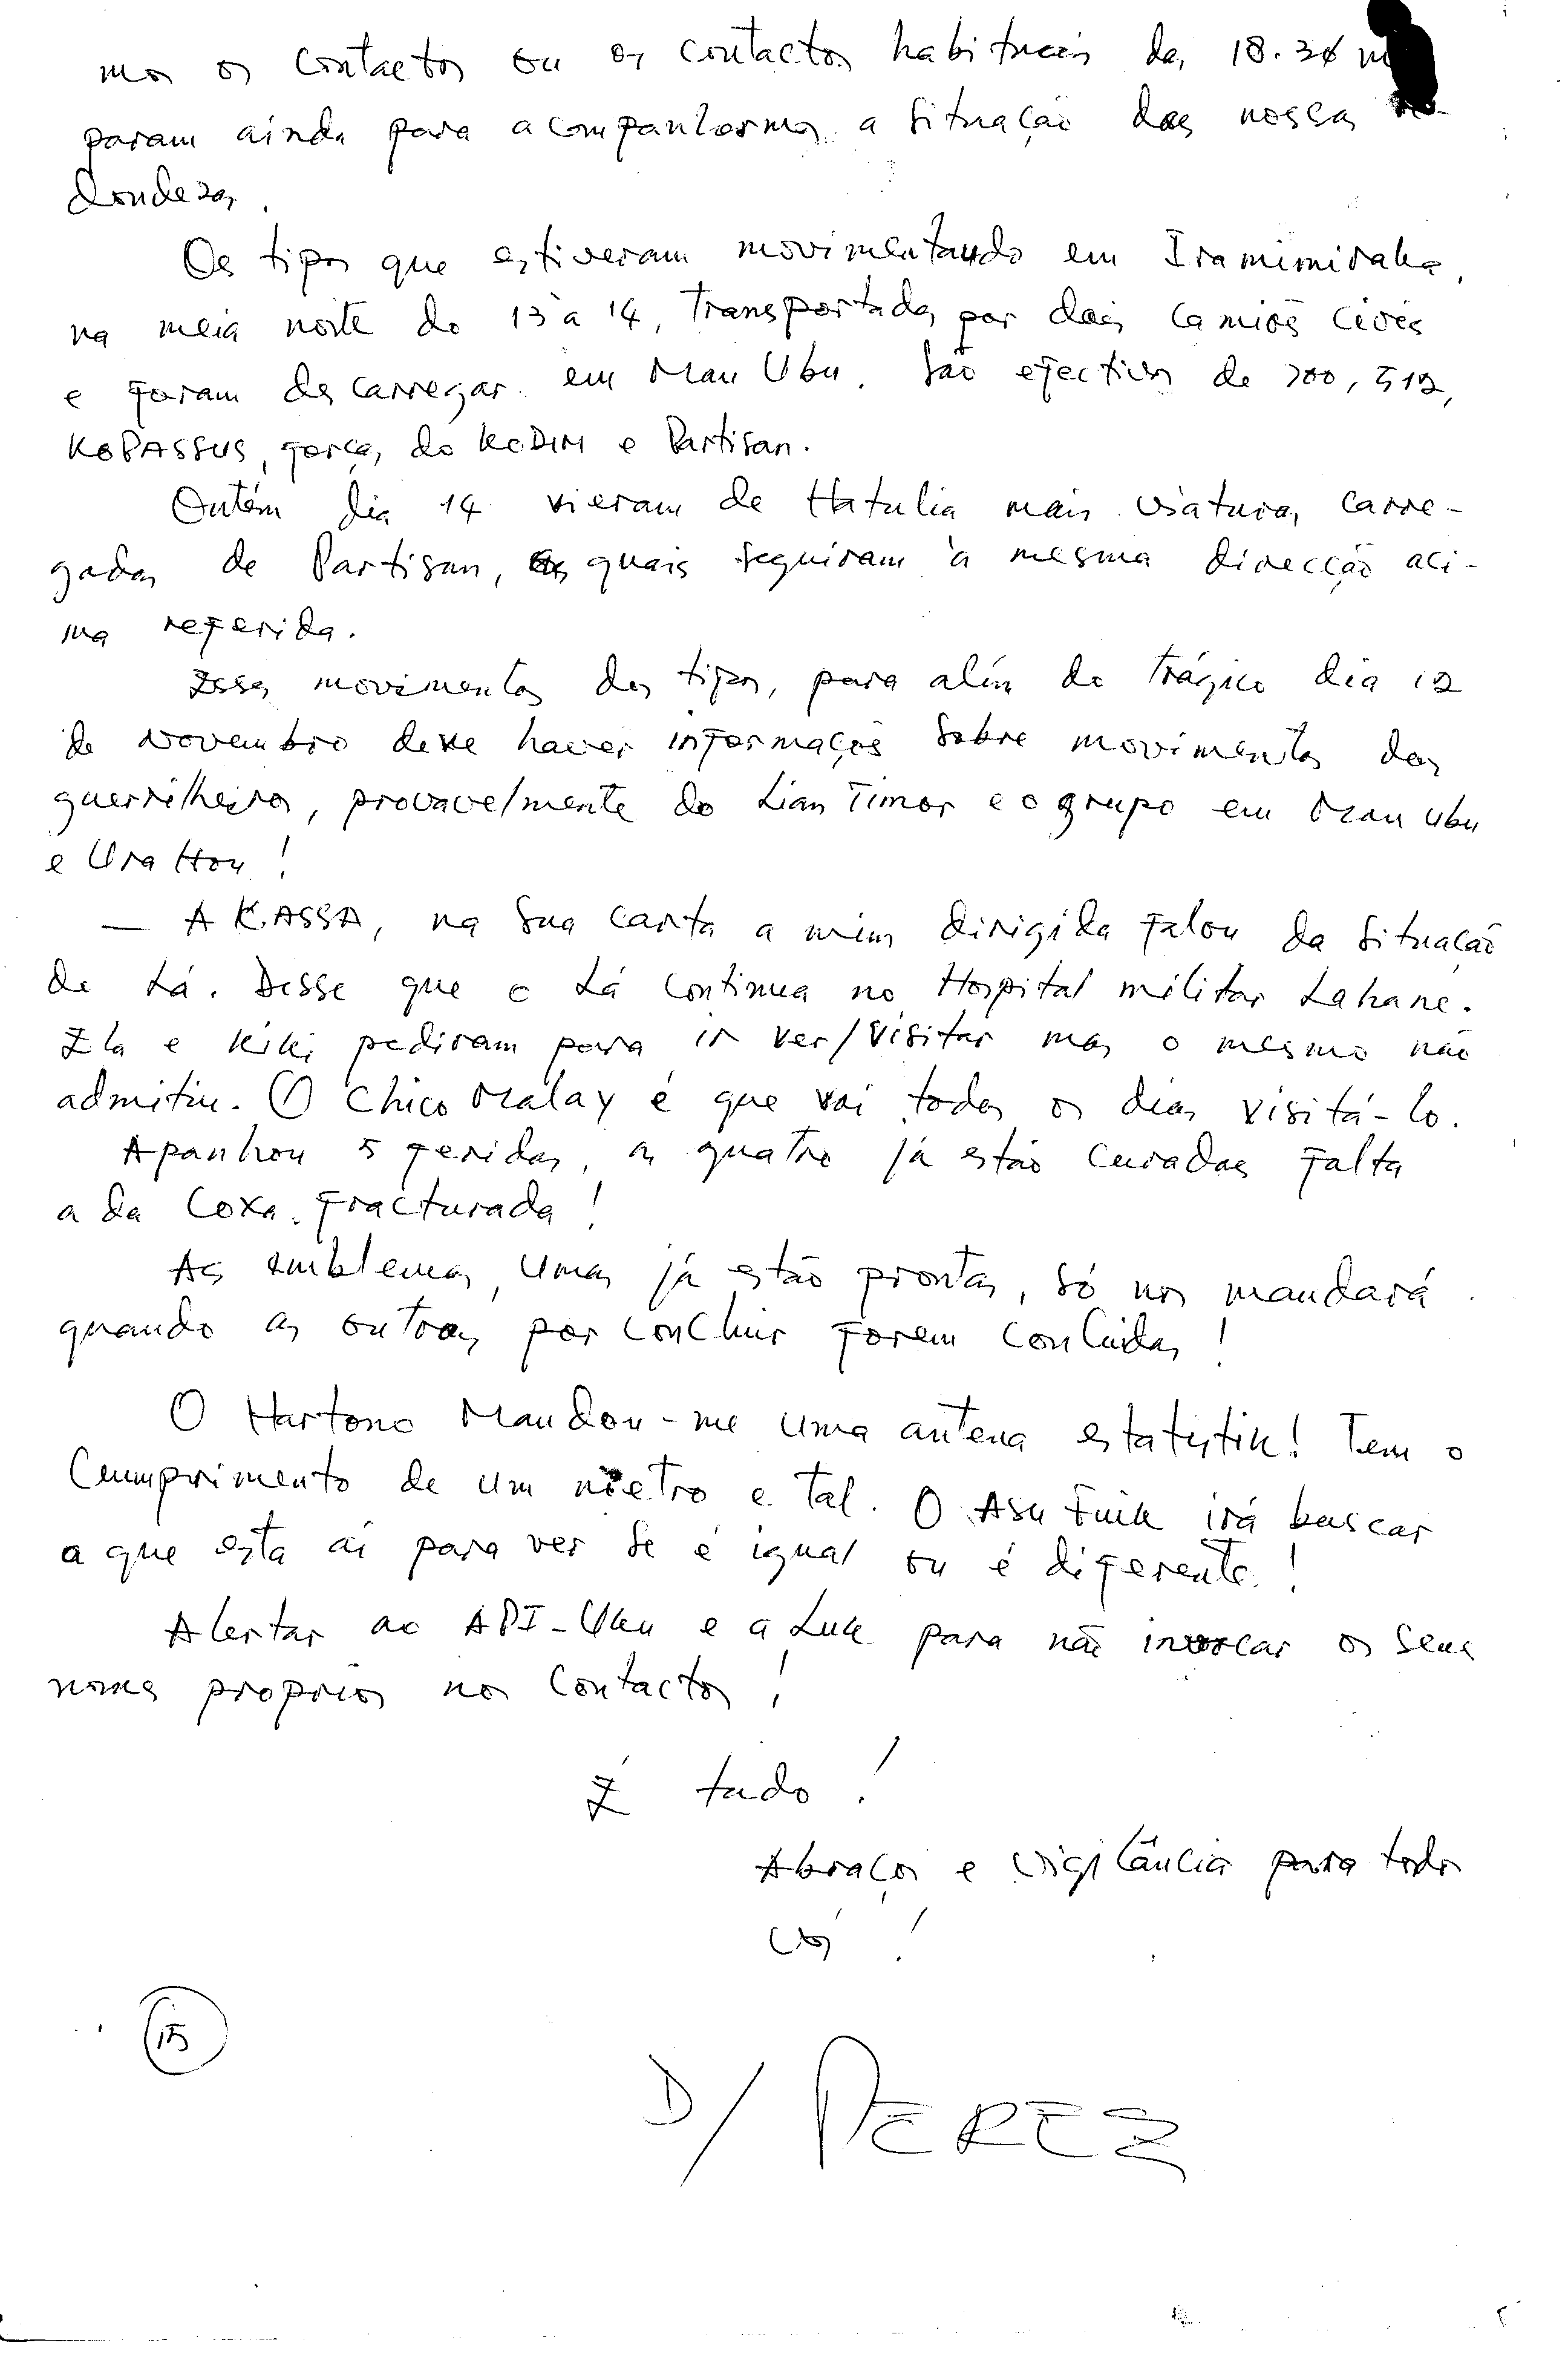 mos os contactos ou os contactos habituais das 18.30
param ainda para acompanharmos a situação das nossas re-
dondezas.
Os tipos que estiveram movimentando em Iramimiraka,
na meia noite do 13 a 14, transportados por dois camiõs civis
e foram descarregar em Mau Ubu. São efectivos de 700, 512,
KOPASSUS, forças do KODIM e Partisan.
Ontém dia 14 vieram de Hatulia mais viaturas carre-
gadas de Partisan, as quais seguiram à mesma direcção aci-
ma referida.
Esses movimentos dos tipos, para além do trágico dia 12
de Novembro deve haver informações sobre movimentos dos
guerrilheiros, provavelmente do Lian Timor e o grupo em Mau Ubu
e Ura Hou!
— A K.ASSA, na sua carta a mim dirigida falou da situação
de Lá. Disse que o Lá continua no Hospital militar Lahane.
Ela e Kiki pediram para ir ver/visitar mas o mesmo não
admitiu. O Chico Malay é que vai todos os dias visitá-lo.
Apanhou 5 feridas, as quatro já estão curadas falta
a da Coxa fracturada!
As emblemas, umas já estão prontas, só nos mandará
quando as outras por concluir forem concluidas!
O Hartono Mandou-me uma antena estatystik! Tem o
Cumprimento de um metro e tal. O Asu Fuik irá buscar
a que está aí para ver se é igual ou é diferente!
Alertar ao API-Uku e a Luk para não invocar os seus
nomes proprios nos contactos!
É tudo!
Abraços e vigilância para todos
vós!
15
D/ PEREZ